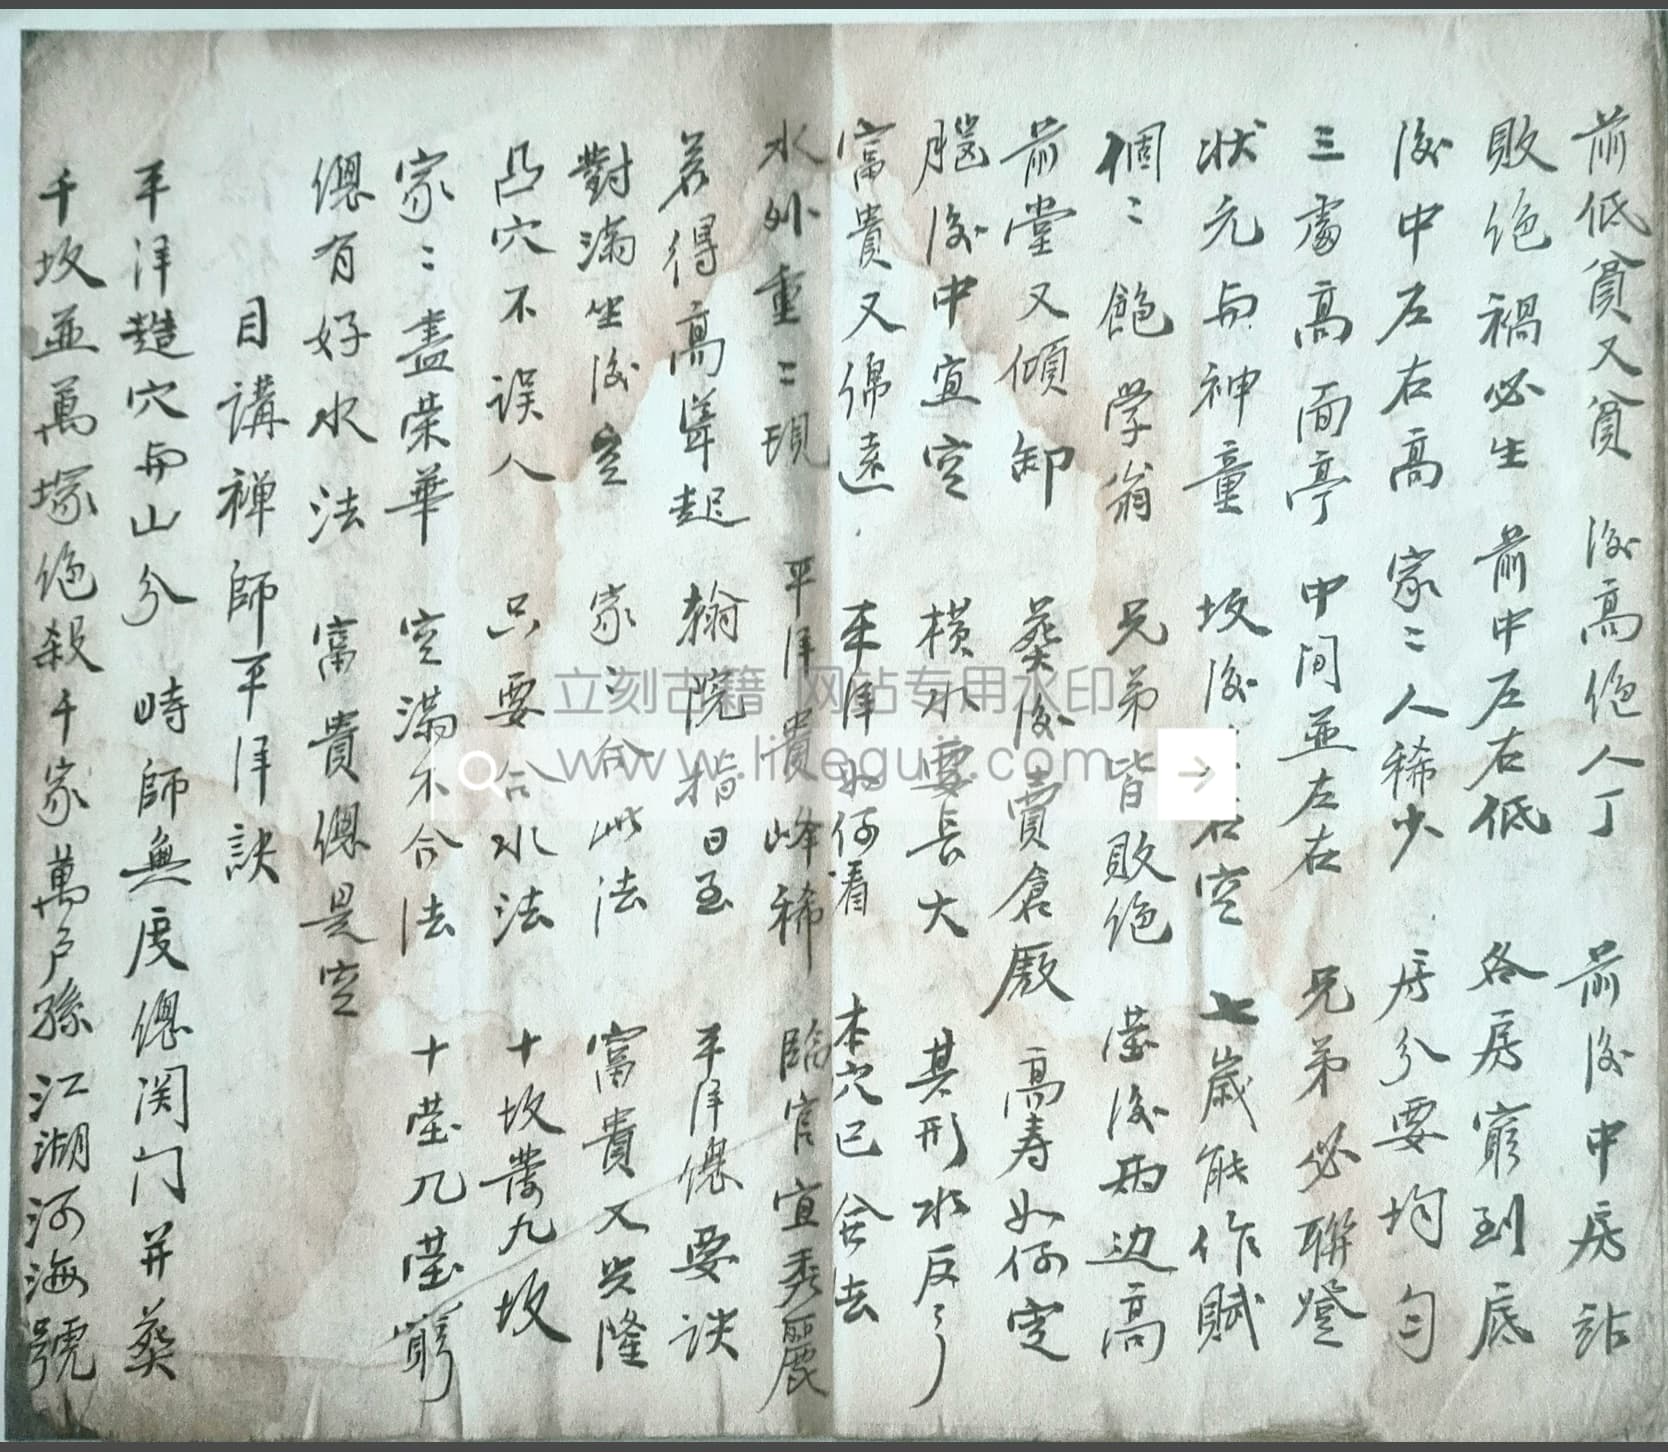 前低貧又貧 後高絕人丁 前後中房站
敗絕禍必生 前中左右低 各房窮到底
後中左右高 家〻人稀少 房分要均勻
三處高面亭 中间並左右 兄弟必聯登
状元与神童 坟後右空 七歲能作賦
個〻飽学翁 兄弟皆敗绝 塋後兩边高
前堂又傾卸 葬後賣倉厫 高寿如何定
腦後中宜空 橫水要長大 其形水反了
富貴又綿遠 平洋如何看 本穴已合去
水外重〻現 平洋貴峰稀 臨官宜秀麗
若得高峯起 翰院指日至 平洋總要談
對滿坐後空 家〻合此法 富貴又兴隆
凸穴不误人 只要合水法 十坟養九坟
家〻盡荣華 空滿不合法 十塋九塋窮
總有好水法 富貴總是空
目講禅師平洋訣
平洋穴与山分 時師無度總関门并葬
千坟並萬塚绝殺千家萬户孫江湖河海號
立刻古籍 网站专用水印